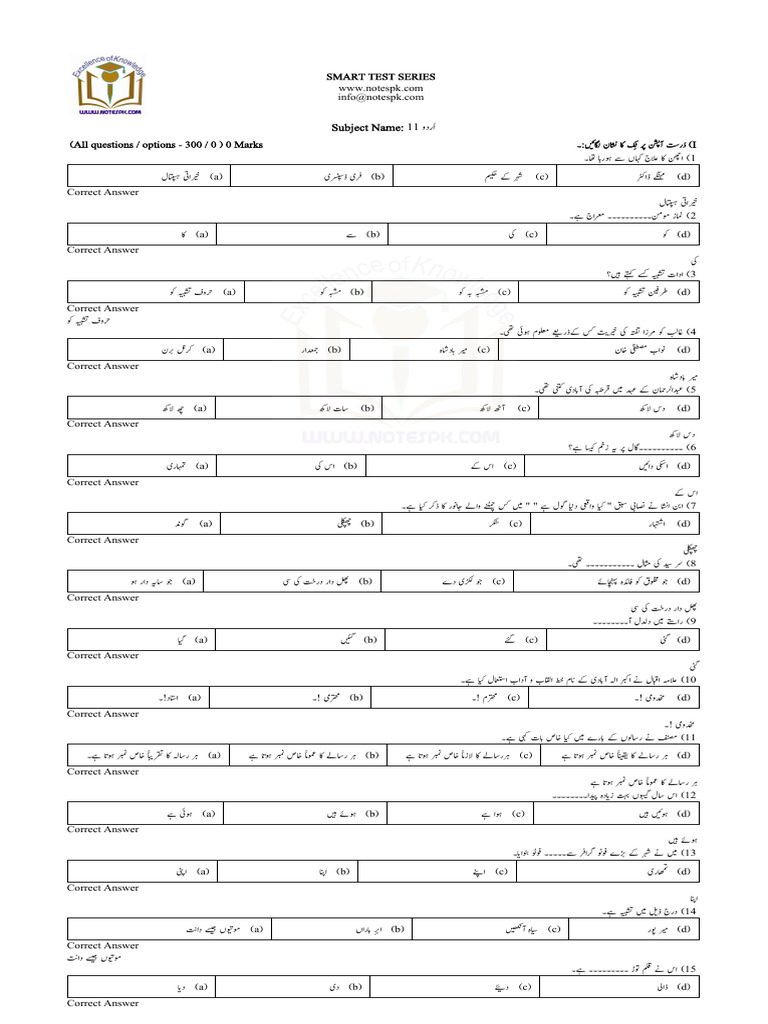 Excellence of Knowledge
WWW.NOTESPK.COM
SMART TEST SERIES
www.notespk.com
info@notespk.com
Subject Name: اُردو 11
(All questions / options - 300 / 0 ) 0 Marks
I) دُرست آپشن پر ٹِک کا نشان لگائیں:۔
1) انچن کا علاج کہاں سے ہورہا تھا۔
(a) خیراتی ہسپتال (b) فری ڈسپنسری (c) شہر کے حکیم (d) مہنگے ڈاکٹر
Correct Answer
خیراتی ہسپتال
2) نماز مومن۔۔۔۔۔۔۔۔۔۔ معراج ہے۔
(a) کا (b) سے (c) کی (d) کو
Correct Answer
کی
3) ادات تشبیہ کسے کہتے ہیں؟
(a) حروف تشبیہ کو (b) مشبہ کو (c) مشبہ بہ کو (d) طرفین تشبیہ کو
Correct Answer
حروف تشبیہ کو
4) غالب کو مرزا تفتہ کی خیریت کس کےذریعے معلوم ہوئی تھی۔
(a) کرنل برن (b) جمعدار (c) میر بادشاہ (d) نواب مصطفیٰ خان
Correct Answer
میر بادشاہ
5) عبدالرحمان کے عہد میں قرطبہ کی آبادی کتنی تھی۔
(a) چھ لاکھ (b) سات لاکھ (c) آٹھ لاکھ (d) دس لاکھ
Correct Answer
دس لاکھ
6) ۔۔۔۔۔۔۔۔۔۔گال پر یہ زخم کیسا ہے؟
(a) تمہاری (b) اس کی (c) اس کے (d) اسکی دائیں
Correct Answer
اس کے
7) ابن انشا نے نصابی سبق " کیا واقعی دنیا گول ہے " " میں کس چمٹنے والے جانور کا ذکر کیا ہے۔
(a) گوند (b) چھپکلی (c) لنگر (d) اشتہار
Correct Answer
چھپکلی
8) سر سید کی مثال ۔۔۔۔۔۔۔۔۔۔۔ تھی۔
(a) جو سایہ دار ہو (b) پھل دار درخت کی سی (c) جو لکڑی دے (d) جو مخلوق کو فائدہ پہنچائے
Correct Answer
پھل دار درخت کی سی
9) راستے میں دلدل آ۔۔۔۔۔۔۔۔
(a) گیا (b) گئیں (c) گئے (d) گئی
Correct Answer
گئی
10) علامہ اقبال نے اکبر الہ آبادی کے نام خط القاب و آداب استعمال کیا ہے۔
(a) استاد!۔ (b) محترمی !۔ (c) محترم !۔ (d) مخدومی !۔
Correct Answer
مخدومی !۔
11) مصنف نے رسالوں کے بارے میں کیا خاص بات کہی ہے۔
(a) ہر رسالہ کا تقریباً خاص نمبر ہوتا ہے۔ (b) ہر رسالے کا عموماً خاص نمبر ہوتا ہے (c) ہررسالے کا لازماً خاص نمبر ہوتا ہے (d) ہر رسالے کا یقیناً خاص نمبر ہوتا ہے
Correct Answer
ہر رسالے کا عموماً خاص نمبر ہوتا ہے
12) اس سال گیہوں بہت زیادہ پیدا۔۔۔۔۔۔۔۔
(a) ہوئی ہے (b) ہوئے ہیں (c) ہوا ہے (d) ہوئیں ہیں
Correct Answer
ہوئے ہیں
13) میں نے شہر کے بڑے فوٹو گرافر سے۔۔۔۔۔ فوٹو بنوایا۔
(a) اپنی (b) اپنا (c) اپنے (d) تمھاری
Correct Answer
اپنا
14) درج ذیل میں تشبیہ ہے۔
(a) موتیوں جیسے دانت (b) ابرِ باراں (c) سیاہ آنکھیں (d) میر پور
Correct Answer
موتیوں جیسے دانت
15) اس نے قلم توڑ ۔۔۔۔۔۔۔۔۔ ہے۔
(a) دیا (b) دی (c) دیئے (d) ڈالی
Correct Answer